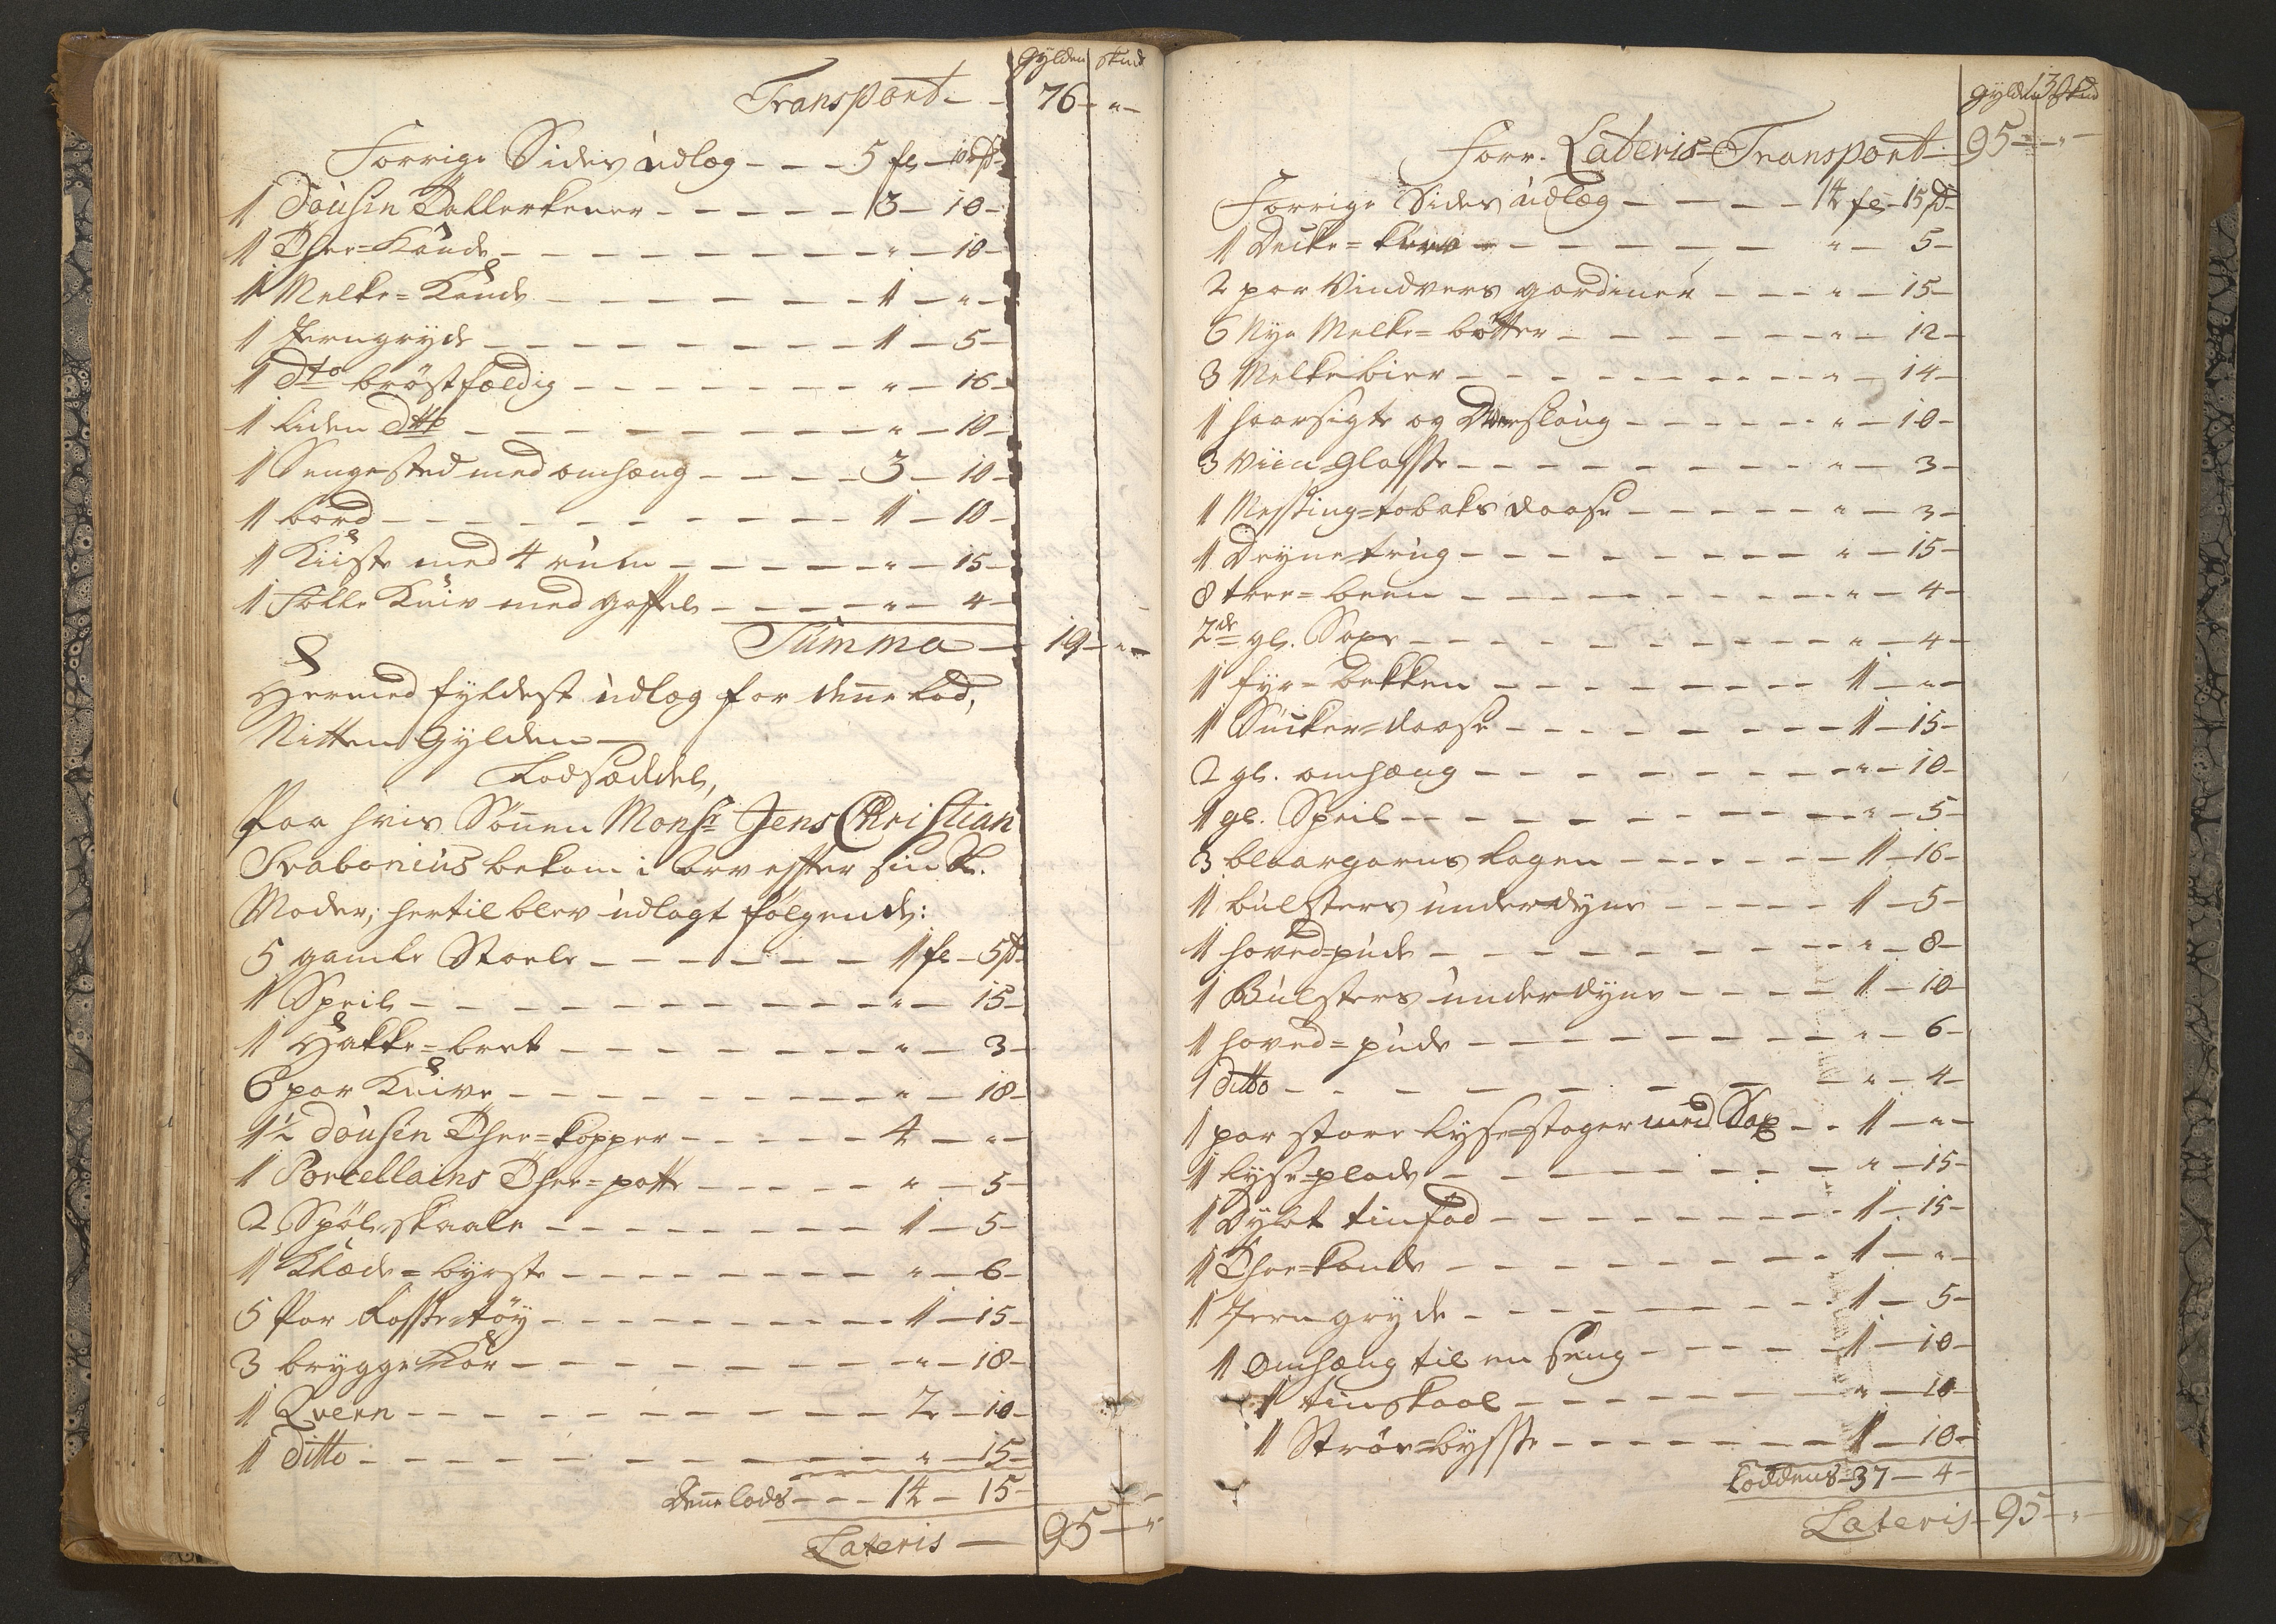 Gylden skind
Transport - - 76 - " -
Forrige Sides udlæg - - - 5 fl - 10 s
1 Dousin Tallerkener - - - - - - 3 - 10 -
1 Thee=Kande - - - - - - - - - " - 10 -
1 Melke=Kande - - - - - - - - 1 - " -
1 Jerngryde - - - - - - - - - 1 - 5 -
1 dto brøstfældig - - - - - - - " - 16 -
1 liden ditto - - - - - - - - - - " - 10 -
1 Sengested med omhæng - - - - 3 - 10 -
1 bord - - - - - - - - - - - 1 - 10 -
1 Kiiste med 4 rum - - - - - - " - 15 -
1 Folle Kniv med gaffel - - - - - " - 4 -
Summa - 19 - " -
Hermed fyldest udlæg for denne Lod,
Nitten Gylden -
Lodsæddel,
Paa hvis Sönnen Monsr Jens Christian
Frabonius bekom i arv efter sin Sl.
Moder; hertil blev udlagt følgende:
5 gamle Stoele - - - - - - - 1 fl - 5 s
1 Speil - - - - - - - - - - - " - 15 -
1 Hakke=bret - - - - - - - - " - 3 -
6 par Knive - - - - - - - - - " - 18 -
1½ Dousin Thee=kopper - - - - - 4 - " -
1 Porcellains Thee=potte - - - - - " - 5 -
2 Spøl-skaale - - - - - - - - 1 - 5 -
1 Klæde=byrste - - - - - - - - " - 6 -
5 Par Kaffe-tøy - - - - - - - - 1 - 15 -
3 brygge Kar - - - - - - - - - " - 18 -
1 Qvern - - - - - - - - - - - 2 - 10 -
1 Ditto - - - - - - - - - - - " - 15 -
Denne lods - - - 14 - 15 -
Lateris - 95 - " -
Gylden skind
Forr. Lateris Transport - 95 - " -
Forrige Sides udlæg - - - - 14 fl - 15 s
1 Decke= - - - - - - - " - 5 -
2 par Vindvers gardiner - - - " - 15 -
6 Nye Melke=bøtter - - - - - - " - 12 -
3 Melkebier - - - - - - - - - " - 14 -
1 haarsigte og - - - - - - " - 10 -
3 Viin-Glasse - - - - - - - - " - 3 -
1 Messing=tobaks daase - - - - - " - 3 -
1 Deynetrug - - - - - - - - " - 15 -
8 træe=been - - - - - - - - - " - 4 -
2de gl. Saxe - - - - - - - - - " - 4 -
1 fyr=bekken - - - - - - - - 1 - " -
1 Sucker=daase - - - - - - - 1 - 15 -
2 gl. omhæng - - - - - - - - " - 10 -
1 gl. Speil - - - - - - - - - " - 5 -
3 blaargarns Lagen - - - - - - 1 - 16 -
1 bulsters underdyne - - - - - 1 - 5 -
1 hoved=pude - - - - - - - - - " - 8 -
1 Bulsters underdyne - - - - 1 - 10 -
1 hoved=pude - - - - - - - - " - 6 -
1 ditto - - - - - - - - - " - 4 -
1 par store lyse=stager med Sax - - 1 - " -
1 lyse=plade - - - - - - - - " - 15 -
1 Dybt tinfad - - - - - - - - 1 - 15 -
1 Thee=kande - - - - - - - - 1 - " -
1 Jerngryde - - - - - - - - - 1 - 5 -
1 Omhæng til en seng - - - - - 1 - 10 -
1 tinskaal - - - - - - - - - " - 10 -
1 Strøe=bysse - - - - - - - 1 - 10 -
Loddens - 37 - 4 -
Lateris - 95 - " -